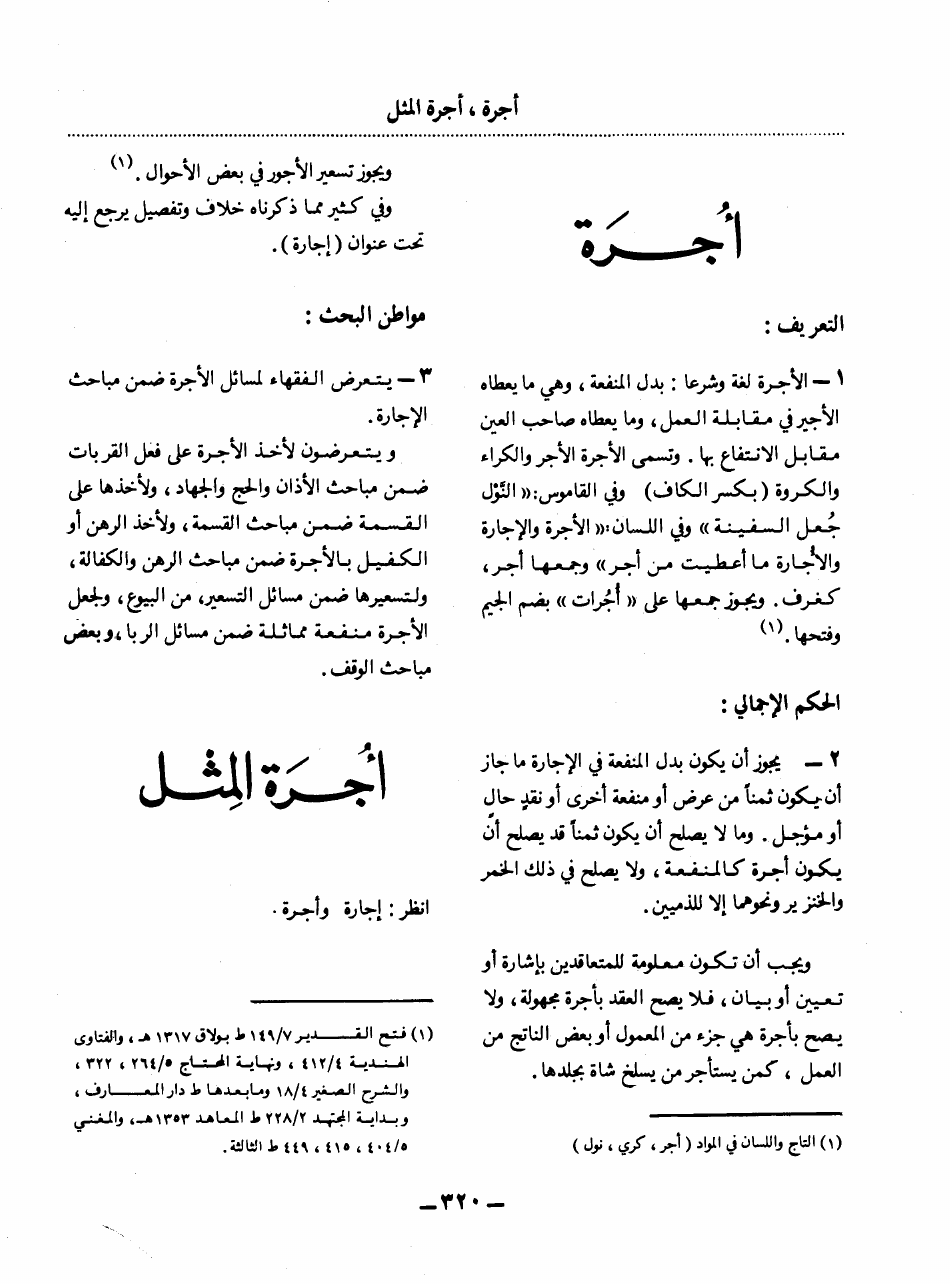 أجرة ، أجرة المثل
أُجـــرَة
التعريف :
١ — الأجـرة لغة وشرعا : بدل المنفعة ، وهي ما يعطاه
الأجير في مقابلـة العـمل ، وما يعطاه صاحب العين
مقابـل الانتفاع بها . وتسمى الأجرة الأجر والكراء
والـكروة ( بكسر الـكاف ) وفي القاموس :« النَّوْل
جُعـل السـفينـة » وفي اللسان :« الأجرة والإجارة
والأُجـارة مـا أعطيت مـن أجـر » وجمعـها أجر ،
كغرف . ويجوز جمعها على « أجُرات » بضم الجيم
وفتحها . (١)
الحكم الإجمالي :
٢ — يجوز أن يكون بدل المنفعة في الإجارة ما جاز
أن يـكون ثمناً من عرض أو منفعة أخرى أو نقدٍ حالٍ
أو مؤجـل . وما لا يصلح أن يكون ثمناً قد يصلح أن
يـكـون أجرة كـالمنـفـعـة ، ولا يصلح في ذلك الخمر
والخنزير ونحوهما إلا للذميين .
ويجب أن تـكـون معـلومة للمتعاقدين بإشارة أو
تعـيين أو بيـان ، فـلا يصح العقد بأجرة مجهولة ، ولا
يـصح بأجرة هي جزء من المعمول أو بعض الناتج من
العمل ، كمن يستأجر من يسلخ شاة بجلدها .
(١) التاج واللسان في المواد ( أجر ، كري ، نول )
ويجوز تسعير الأجور في بعض الأحوال . (١)
وفي كثير مما ذكرناه خلاف وتفصيل يرجع إليه
تحت عنوان ( إجارة ) .
مواطن البحث :
٣ — يـتـعرض الـفقهاء لمسائل الأجرة ضمن مباحث
الإجارة .
و يـتـعـرضـون لأخـذ الأجـرة على فعل القربات
ضـمن مباحث الأذان والحج والجهاد ، ولأخذها على
القـسمـة ضـمـن مباحث القسمة ، ولأخذ الرهن أو
الـكفيـل بـالأجرة ضمن مباحث الرهن والكفالة ،
ولـتسعيرها ضمن مسائل التسعير، من البيوع ، ولجعل
الأجرة مـنـفـعـة مماثـلـة ضمن مسائل الربا ، وبعض
مباحث الوقف .
أُجـــرَة المِثـــل
انظر : إجارة وأجـرة .
(١) فـتـح الـقـــديـر ١٤٩/٧ ط بـولاق ١٣١٧ هـ ، والفتاوى
الهـنـديـة ٤١٢/٤ ، ونهـايـة المحـتـاج ٢٦٤/٥ ، ٣٢٢ ،
والشرح الصغير ١٨/٤ ومابعدهـا ط دار المـعـــارف ،
وبـدايـة المجتهد ٢٢٨/٢ ط المعاهد ١٣٥٣هـ، والمغني
٤٠٤/٥ ، ٤١٥ ، ٤٤٩ ط الثالثة .
— ٣٢٠ —